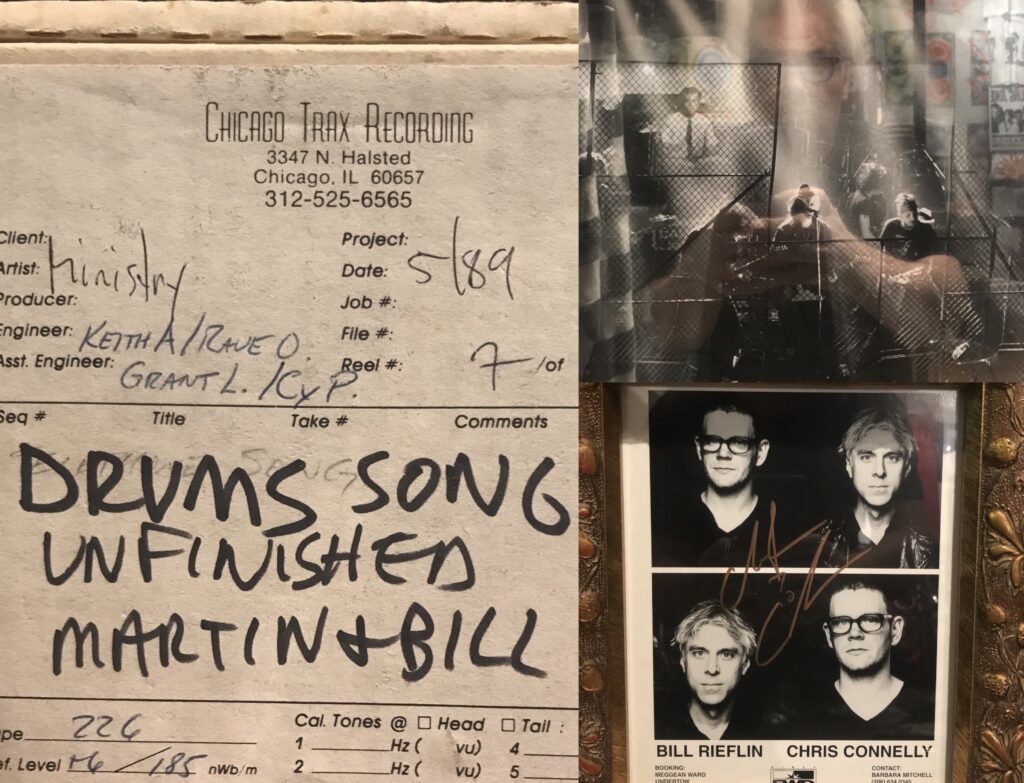 CHICAGO TRAX RECORDING
3347 N. Halsted
Chicago, IL 60657
312-525-6565
Client:
Artist: Ministry
Producer:
Engineer: KEITH A/RAVE O.
Asst. Engineer: GRANT L./CY P.
Project:
Date: 5/89
Job #:
File #:
Reel #: 7 /of
Seq # Title Take # Comments
DRUMS SONG
UNFINISHED
MARTIN & BILL
226
Cal. Tones @ Head Tail :
1 Hz ( vu) 4
ef. Level +6/185 nWb/m
2 Hz ( vu) 5
BILL RIEFLIN CHRIS CONNELLY
BOOKING:
MEGGEAN WARD
UNDERTOW
CONTACT:
BARBARA MITCHELL